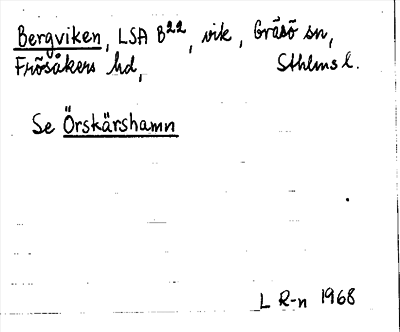 Bergviken, LSA B22, vik, Gräsö sn,
Frösåkers hd, Sthlms l.
Se Örskärshamn
L R-n 1968